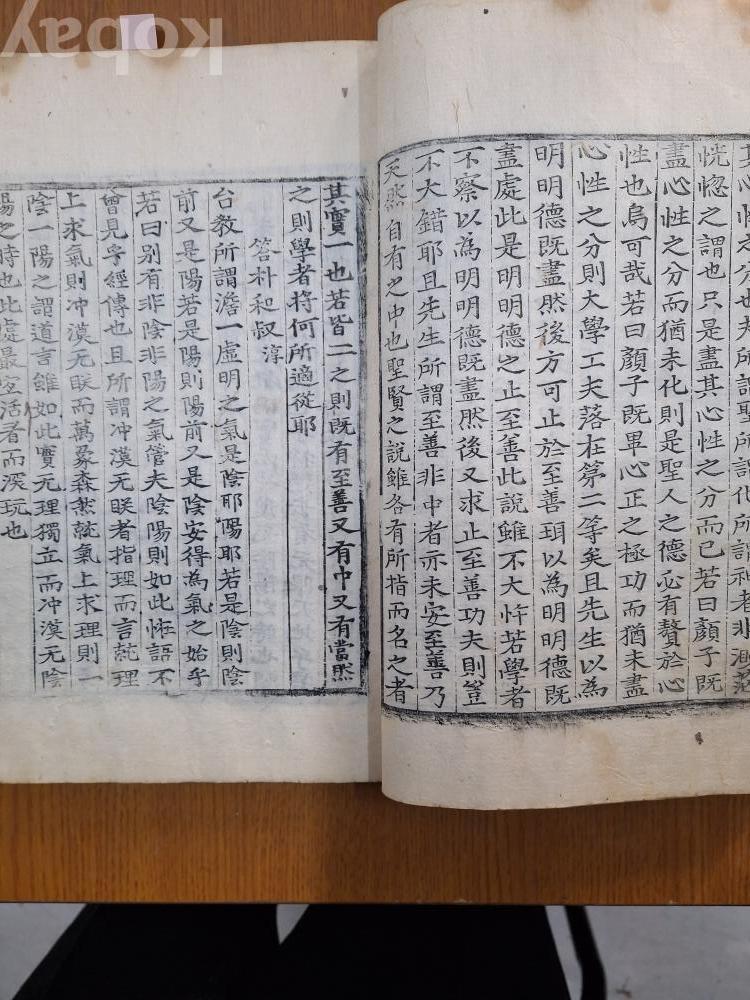 心性之分也夫所謂神者非渺茫
恍惚之謂也只是盡其心性之分而已若曰顏子既
盡心性之分而猶未化則是聖人之德必有贅於心
性也烏可哉若曰顏子既畢心正之極功而猶未盡
心性之分則大學工夫落在第二等矣且先生以為
明明德既盡然後方可止於至善珥以為明明德既
盡處此是明明德之止至善此說雖不大忤若學者
不察以為明明德既盡然後又求止至善功夫則豈
不大錯耶且先生所謂至善非中者亦未安至善乃
天然自有之中也聖賢之說雖各有所指而名之者
其實一也若皆二之則既有至善又有中又有當然
之則學者將何所適從耶
答朴和叔 淳
台教所謂澹一虛明之氣是陰耶陽耶若是陰則陰
前又是陽若是陽則陽前又是陰安得為氣之始乎
若曰別有非陰非陽之氣管夫陰陽則如此恠語不
曾見乎經傳也且所謂冲漠无眹者指理而言就理
上求氣則冲漠无眹而萬象森然就氣上求理則一
陰一陽之謂道言雖如此實无理獨立而冲漠无陰
陽之時也此處最宜活看而深玩也
kobay